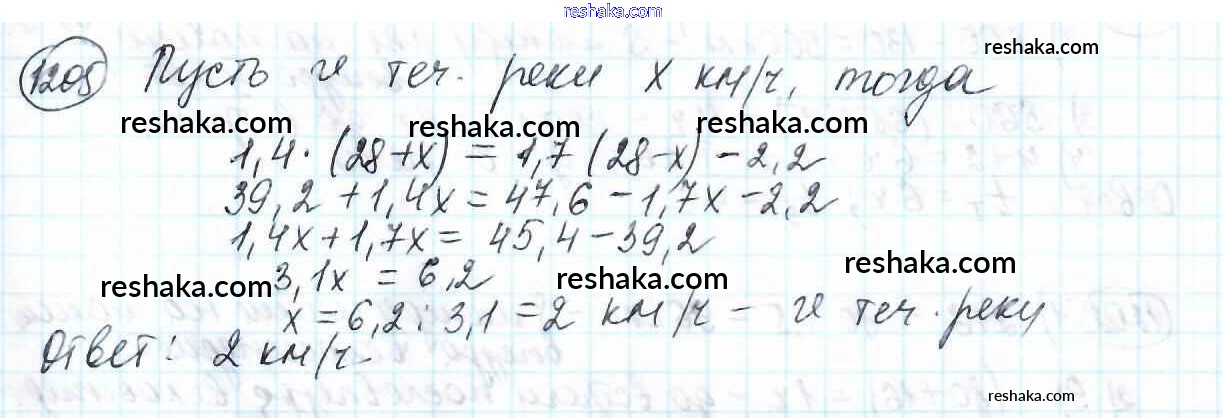 reshaka.com
1205 Пусть υ теч. реки x км/ч, тогда
reshaka.com
reshaka.com reshaka.com reshaka.com
1,4 · (28+x) = 1,7 (28-x) - 2,2
39,2 + 1,4x = 47,6 - 1,7x - 2,2
1,4x + 1,7x = 45,4 - 39,2
reshaka.com
3,1x = 6,2
reshaka.com reshaka.com
x = 6,2 : 3,1 = 2 км/ч - υ теч. реки
Ответ: 2 км/ч
reshaka.com reshaka.com
reshaka.com